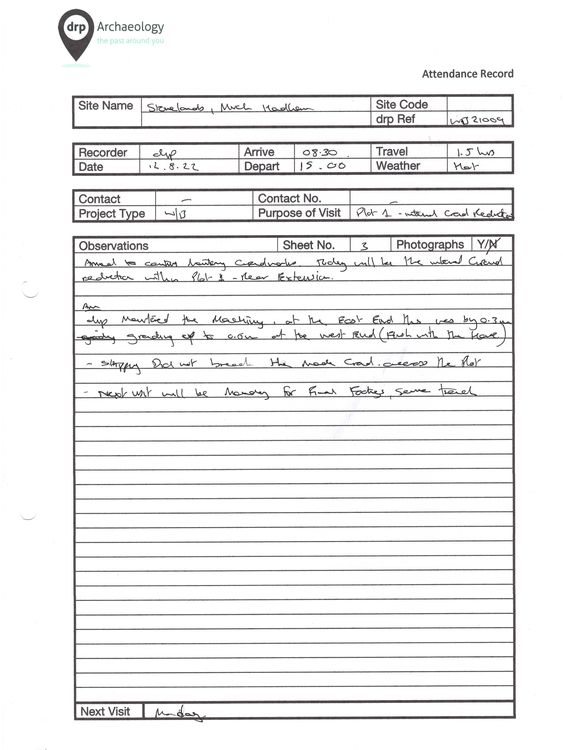 drp Archaeology
the past around you
Attendance Record
Site Name Stonelands, Much Hadham Site Code
drp Ref WB21009
Recorder drp Arrive 08.30 Travel 1.5 hrs
Date 12.8.22 Depart 15.00 Weather Hot
Contact – Contact No. –
Project Type WB Purpose of Visit Plot 1 - internal Grnd Reduction
Observations Sheet No. 3 Photographs Y/N
Arrived to continue monitoring Groundworks. Today will be the internal Ground
reduction within Plot 1 - Rear Extension.
Am
drp monitored the Machining, at the East End this was by 0.3m
grading up to 0.5m at the west End (flush with the
- Did not breach the made Grnd. across the Plot
- Next visit will be Monday for Final Footings, same
Next Visit Monday.